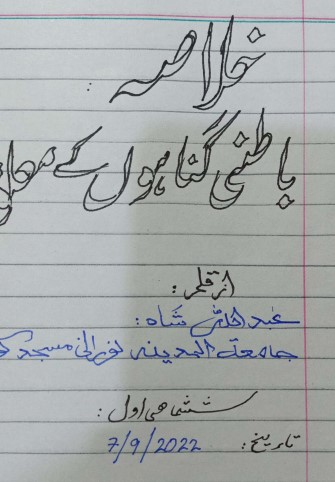 خلاصہ:
باطنی گناہوں کے
از قلم:
شاہ:
جامعۃ المدینہ نورانی مسجد
ششماہی اول:
تاریخ: 7/9/2022